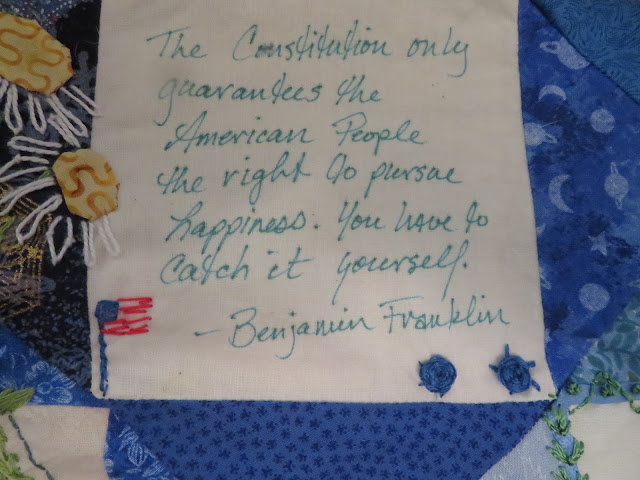 The Constitution only
guarantees the
American People
the right to pursue
happiness. You have to
catch it yourself.
- Benjamin Franklin